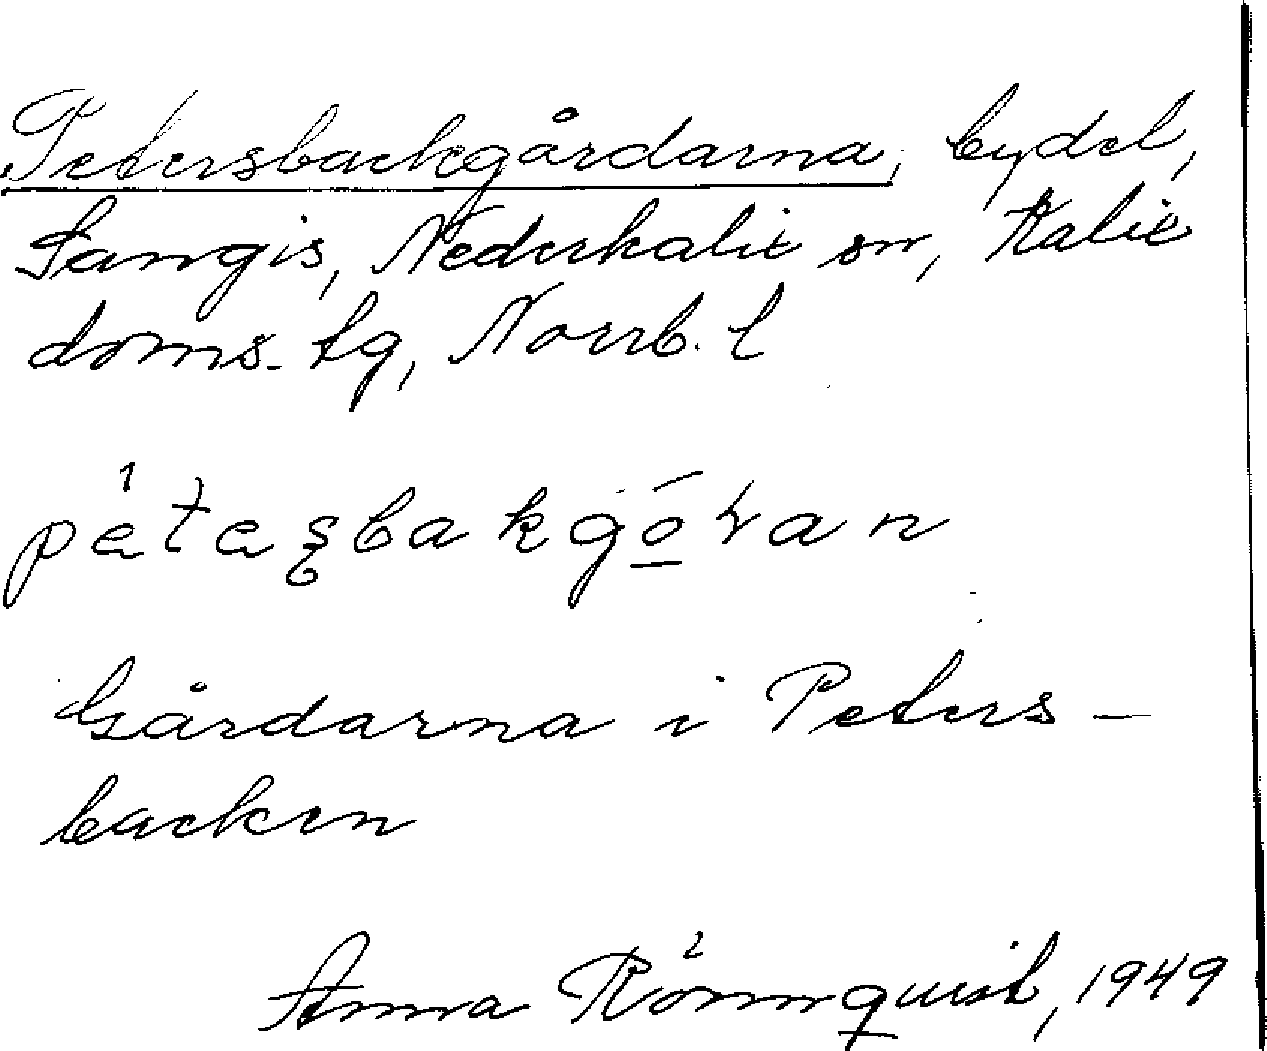 Petersbackgårdarna, bydel,
Sangis, Nederkalix sn, Kalix
doms. tg, Norrb. l
Gårdarna i Peters-
backen
Anna Rönnquist, 1949